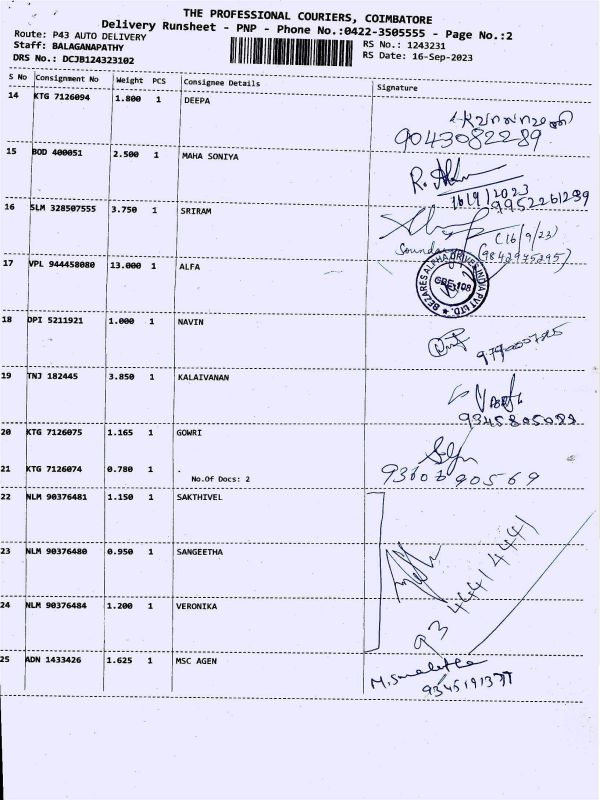 THE PROFESSIONAL COURIERS, COIMBATORE
Delivery Runsheet - PNP - Phone No.:0422-3505555 - Page No.:2
Route: P43 AUTO DELIVERY
Staff: BALAGANAPATHY
RS No.: 1243231
DRS No.: DCJB124323102
RS Date: 16-Sep-2023
S No Consignment No Weight PCS Consignee Details Signature
14 KTG 7126094 1.800 1 DEEPA
9043082289
15 BOD 400051 2.500 1 MAHA SONIYA
16/9/2023
9952261239
16 SLM 328507555 3.750 1 SRIRAM
(16/9/23)
17 VPL 944458080 13.000 1 ALFA
(9842975295)
BEZARES ALPHA DRIVES INDIA PVT LTD.
CBE-108
18 DPI 5211921 1.000 1 NAVIN
19 TNJ 182445 3.850 1 KALAIVANAN
20 KTG 7126075 1.165 1 GOWRI
21 KTG 7126074 0.780 1 .
No.Of Docs: 2
22 NLM 90376481 1.150 1 SAKTHIVEL
23 NLM 90376480 0.950 1 SANGEETHA
9344414441
24 NLM 90376484 1.200 1 VERONIKA
25 ADN 1433426 1.625 1 MSC AGEN